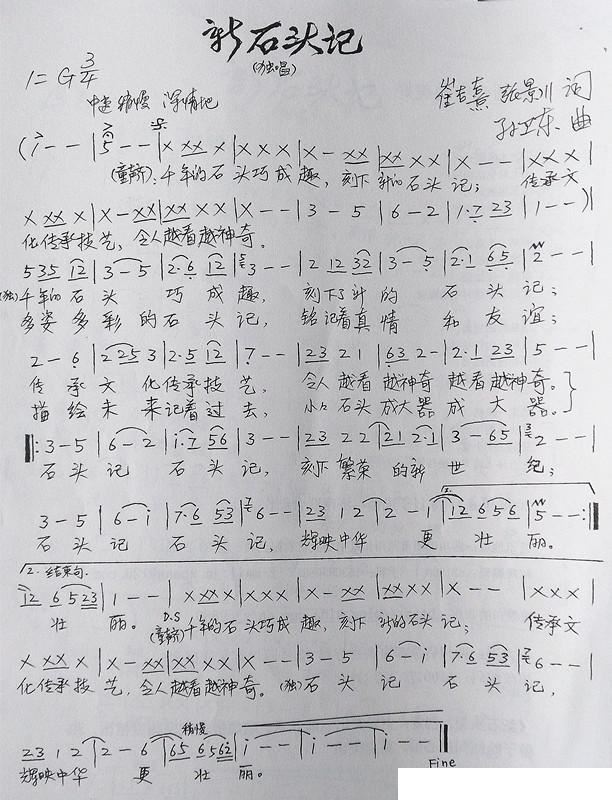 新石头记
(独唱)
1=G 3/4
中速 稍慢 深情地
崔吉熹 张景川 词
孙卫东 曲
(i - - | 5 - - | X XX X | X X X | X - XX | XX X X | X - - | X X X |
(童声): 千年的石头巧成趣, 刻下新的石头记; 传承文
X XX X | X - XX | XX X X | X - - | 3 - 5 | 6 - 2 | 1·7 23 | 1 - - ) |
化传承技艺, 令人越看越神奇。
535 12 | 3 - 5 | 2·6 12 | 3 - - | 2 12 32 | 3 - 5 | 2·1 65 | 2 - - |
(独) 千年的石头 巧成趣, 刻下斗的石头记;
多姿多彩的石头记, 铭记着真情和友谊;
2 - 6 | 225 3 | 2·5 12 | 7 - - | 23 2 1 | 63 2 - | 2·1 23 | 5 - - |
传承文化传承技艺, 令人越看越神奇越看越神奇。
描绘未来记着过去, 小小石头成大器成大器。
|: 3 - 5 | 6 - 2 | i·7 56 | 3 - - | 23 2 2 | 21 2·1 | 3 - 65 | 2 - - |
石头记 石头记, 刻下繁荣的新世纪;
3 - 5 | 6 - i | 7·6 53 | 6 - - | 23 1 2 | 2 - 1 | 12 6 56 | 5 - - :|
石头记 石头记, 辉映中华更壮丽。
2. 结束句.
12 6 523 | 1 - - | X XX X | X X X | X - XX | XX X X | X - - | X X X |
壮丽。 D.S (童声) 千年的石头巧成趣, 刻下新的石头记; 传承文
X XX X | X - XX | XX X X | X - - | 3 - 5 | 6 - i | 7·6 53 | 6 - - |
化传承技艺, 令人越看越神奇。 (独) 石头记 石头记,
稍慢
23 1 2 | 2 - 6 | 65 6 562 | i - - | i - - | i - - |
辉映中华更壮丽。 Fine